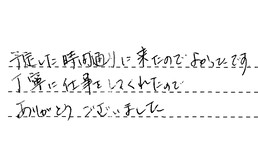 予定した時間通りに来たのでよかったです
丁寧に仕事をしてくれたので
ありがとうございました